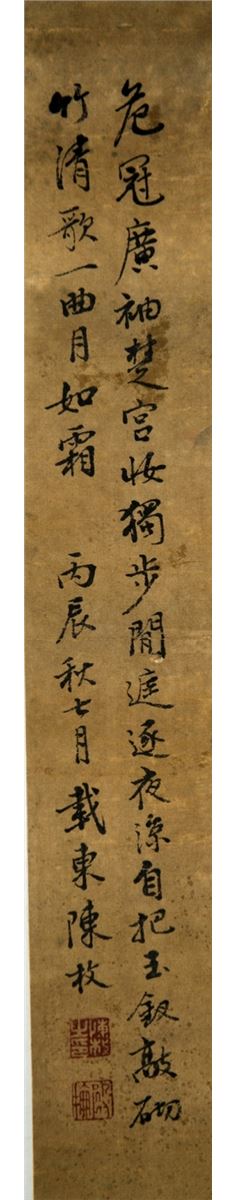 危冠廣袖楚宮妝獨步閒庭逐夜涼自把玉釵敲砌
竹清歌一曲月如霜 丙辰秋七月載東陳枚